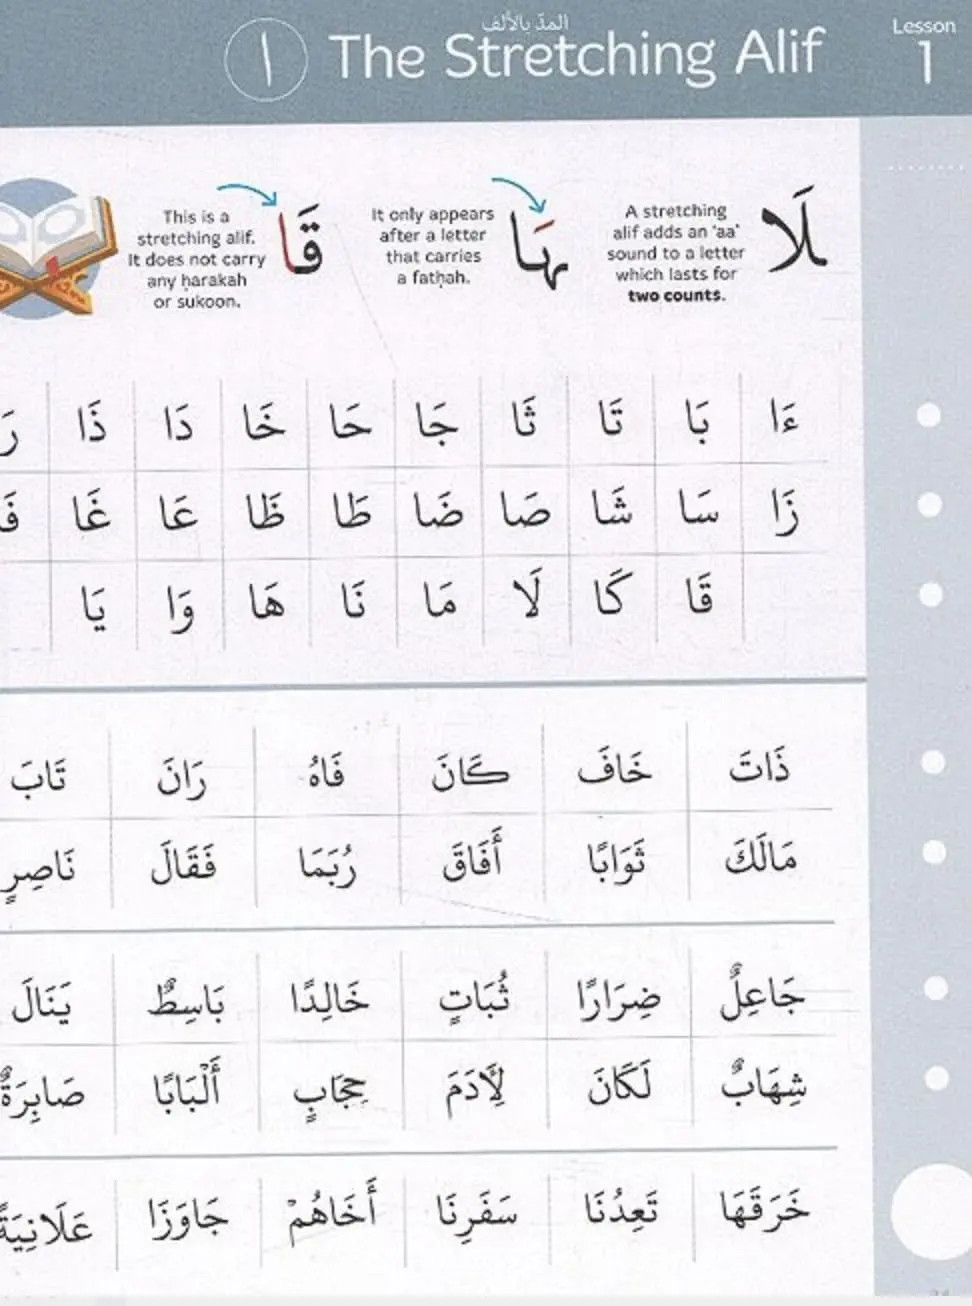 المدّ بالألف
ا The Stretching Alif
Lesson
1
A stretching
alif adds an 'aa'
sound to a letter
which lasts for
two counts.
لَا
It only appears
after a letter
that carries
a fatḥah.
هَا
This is a
stretching alif.
It does not carry
any ḥarakah
or sukoon.
قَا
ءَا بَا تَا ثَا جَا حَا خَا دَا ذَا
زَا سَا شَا صَا ضَا طَا ظَا عَا غَا
قَا كَا لَا مَا نَا هَا وَا يَا
ذَاتَ خَافَ كَانَ فَاهُ رَانَ تَابَ
مَالَكَ ثَوَابًا أَفَاقَ رُبَمَا فَقَالَ نَاصِرٍ
جَاعِلٌ ضِرَارًا ثُبَاتٍ خَالِدًا بَاسِطٌ يَنَالَ
شِهَابٌ لَكَانَ لِأَدَمَ حِجَابٍ أَلْبَابًا صَابِرَةٌ
خَرَقَهَا تَعِدُنَا سَفَرِنَا أَخَاهُمْ جَاوَزَا عَلَانِيَةً